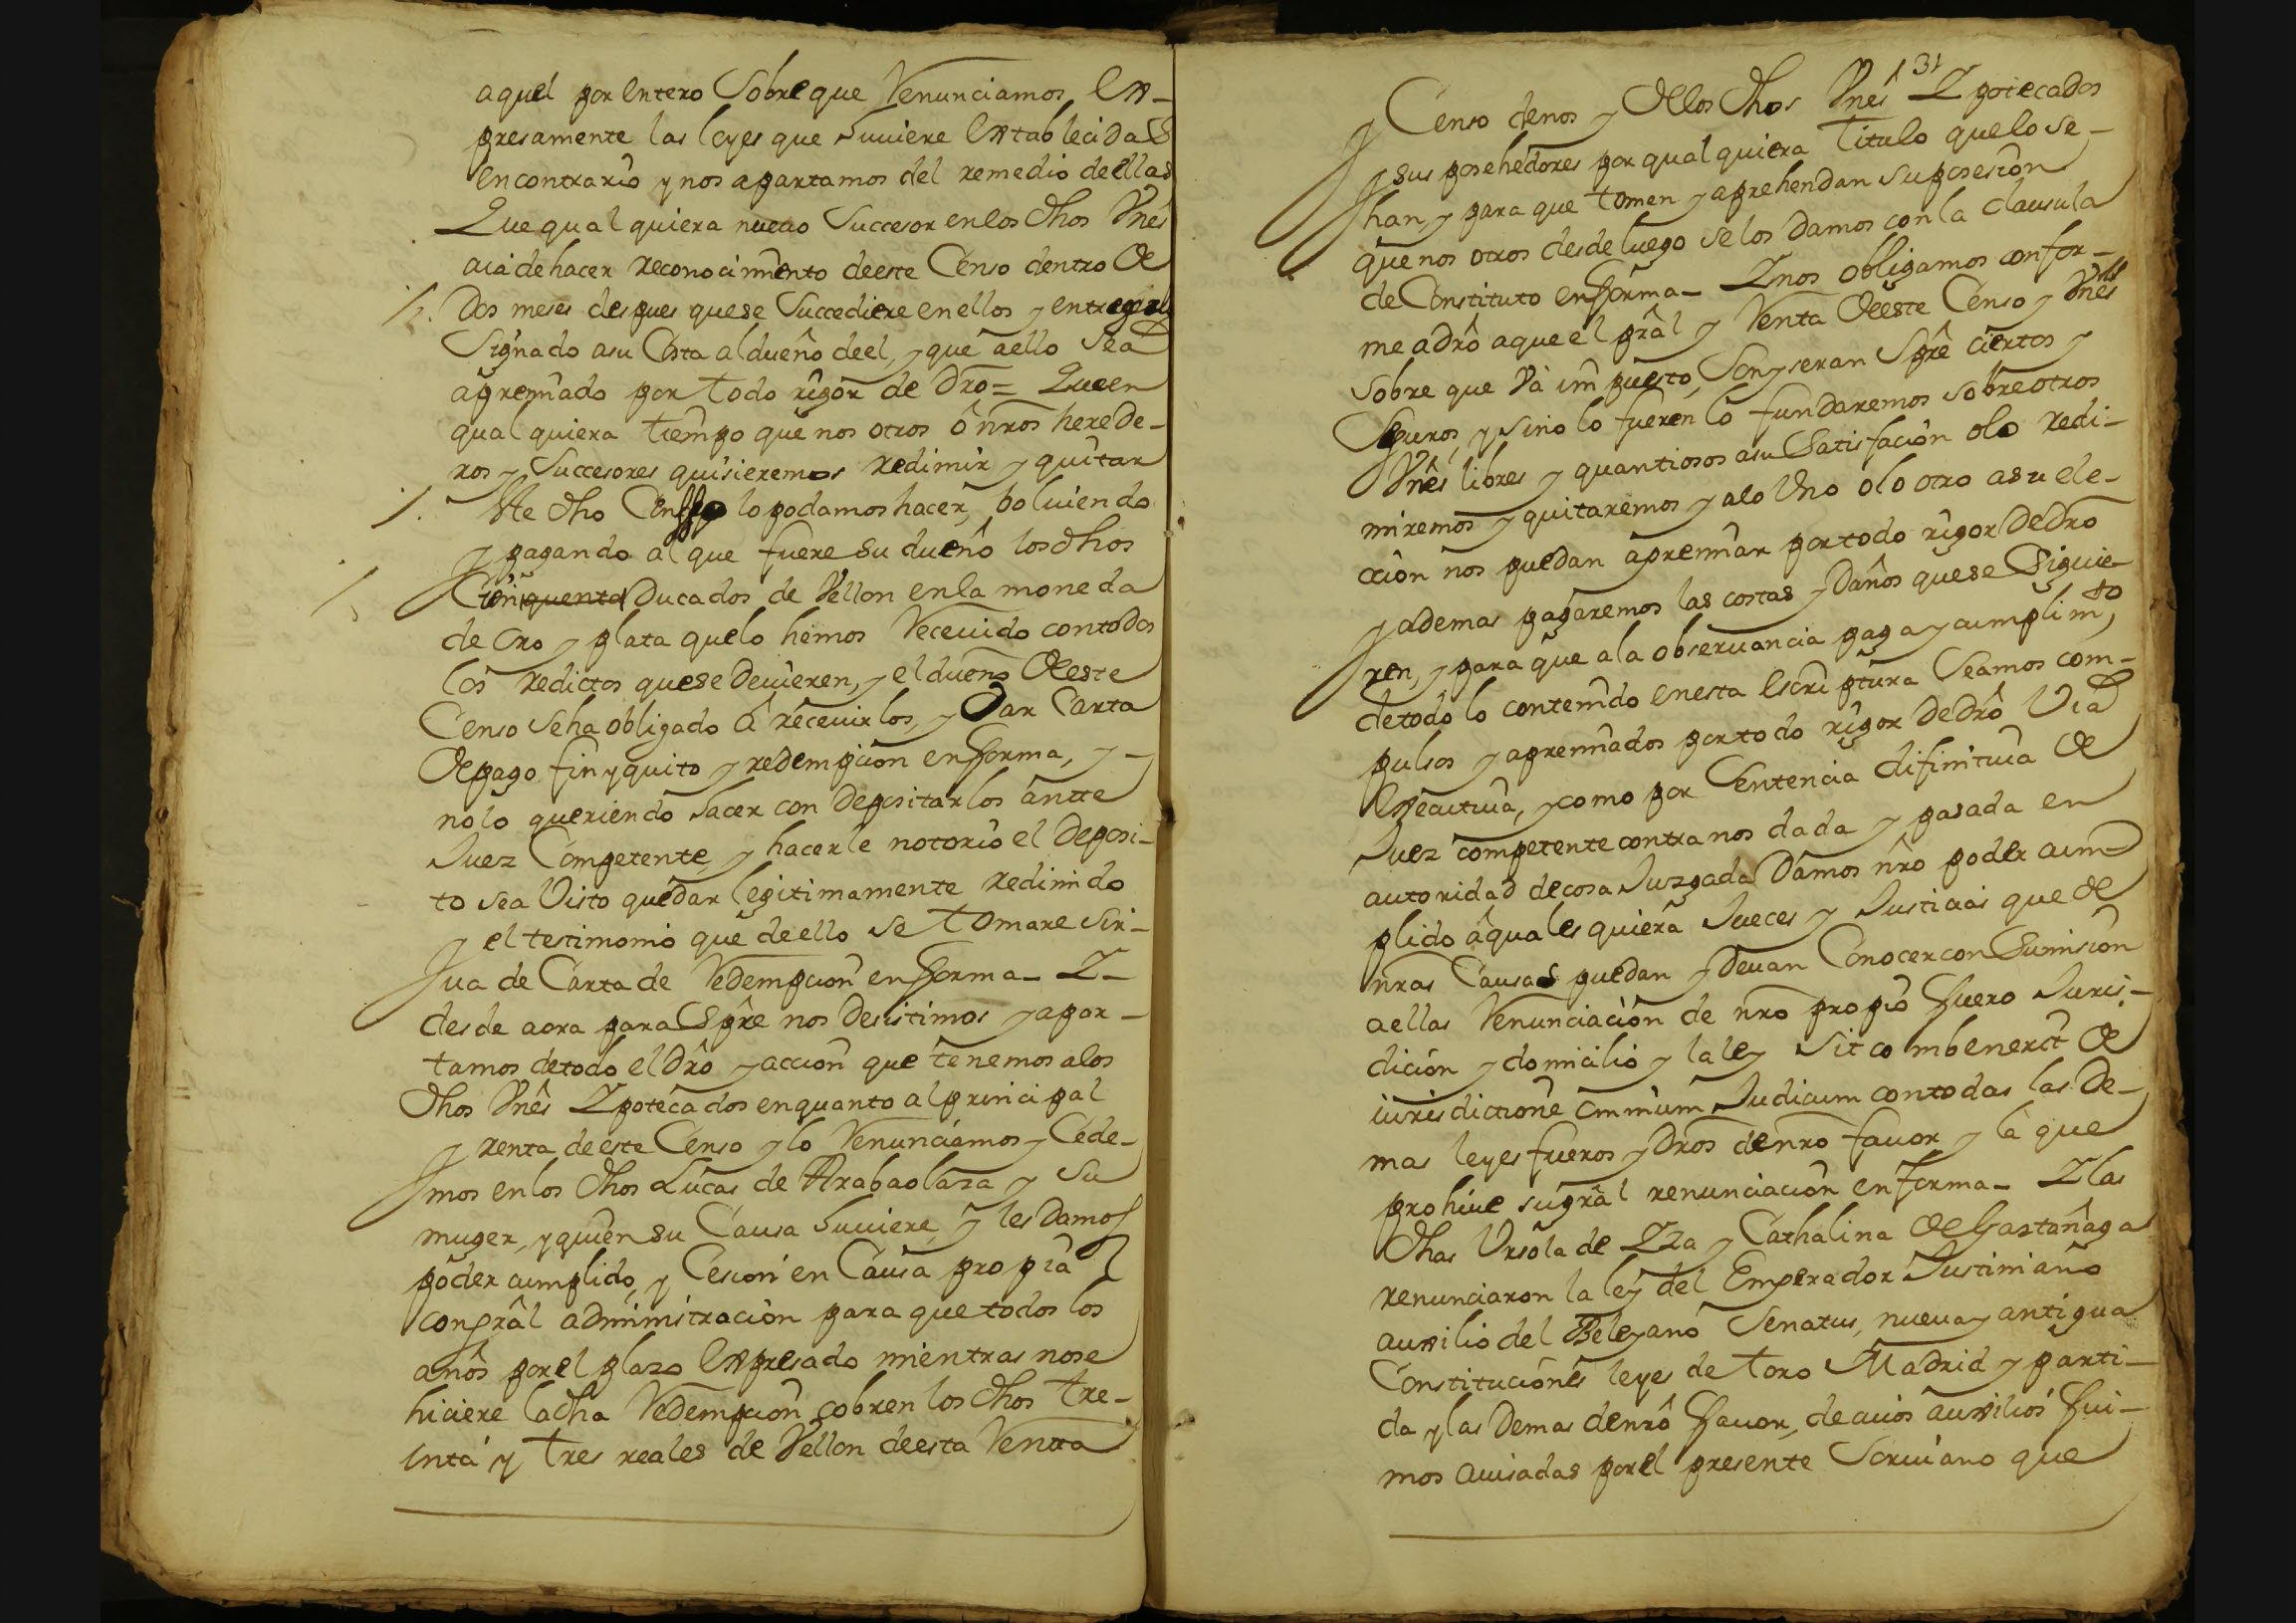 aquel por entero Sobre que Renunciamos Ex-
presamente las leyes que huuiere Extablecidas
en contrario y nos apartamos del remedio de ellas
Que qual quiera nuevo Succesor en los dhos Vnês
aia de hacer reconocimiento de este Censo dentro de
Dos meses despues que se Succediere en ellos y entregarlo
Signado a su Costa al dueño de el, y que a ello sea
apremiado por todo rigor de Dro = Que en
qual quiera tiempo que nos otros ô nros herede-
ros y Succesores quisieremos redimir y quitar
Este dho Censso lo podamos hacer, bolviendo
y pagando al que fuere su dueño los dhos
Cien Ducados de Vellon en la moneda
de oro y plata que lo hemos Receuido con todos
los redictos que se Deuieren, y el dueño de este
Censo se ha obligado â receuirlos, y Dar Carta
de pago fin y quito y redempcion en forma, y -
no lo queriendo hacer con Depositarlos antte
Juez Competente, y hacerle notorio el Deposi-
to sea Visto quedar legitimamente redimido
y el testimonio que de ello se tomare sir-
ua de Carta de Redempcion en forma - Y -
desde aora para Spre nos Desistimos y apar-
tamos de todo el Dro y accion que tenemos a los
dhos Vnês Ypotecados en quanto al principal
y renta de este Censo y lo Renunciamos y Cede-
mos en los dhos Lucas de Arabaolaza y su
muger, y quien su Causa huuiere, y les Damos
poder cumplido, y Cesion en Causa propia
con grâl administracion para que todos los
años por el plazo Expresado mientras no se
hiciere la dha Redempcion cobren los dhos tre-
inta y tres reales de Vellon de esta Rentta
131
y Censo de nos y de los dhos Vnês Ypotecados
y sus posehedores por qual quiera Titulo que lo se-
han, y para que tomen y aprehendan su posesion
que nos otros desde luego se los Damos con la clausula
de Constituto en forma - Y nos obligamos confor-
me a drô a que el prâl y Renta de este Censo y Vnês
sobre que Va impuesto, Son y seran Spre ciertos y
Seguros, y sino lo fueren lo fundaremos sobre otros
Vnês libres y quantiosos a su Satisfacion o lo redi-
miremos y quitaremos y a lo Uno o lo otro a su ele-
ccion nos puedan apremiar por todo rigor de Dro
y ademas pagaremos las costas y Daños que se Siguie-
ren, y para que a la observancia paga y cumplimto
de todo lo contenido en esta Escriptura Seamos com-
pulsos y apremiados por todo rigor de Drô Via
Executiua, y como por Sentencia difinitiua de
Juez competente contra nos dada y pasada en
autoridad de cosa Juzgada Damos nro poder cum-
plido â quales quiera Jueces y Justicias que de
nras Causas puedan y Deuan Conocer con Sumision
a ellas Renunciacion de nro propio fuero Juris-
dicion y domicilio y la ley Sit combenerit de
iurisdictione omnium Judicum con todas las De-
mas leyes fueros y Dros de nro fauor y la que
prohiue su grâl renunciacion en forma - Y las
dhas Ursola de Yza y Cathalina de Gastañaga
renunciaron la ley del Emperador Justiniano
auxilio del Beleyano Senatus, nueua y antigua
Constituciones leyes de toro Madrid y parti-
da y las Demas de nrô fauor, de cuios auxilios fui-
mos auisadas por el presente Scriuano que